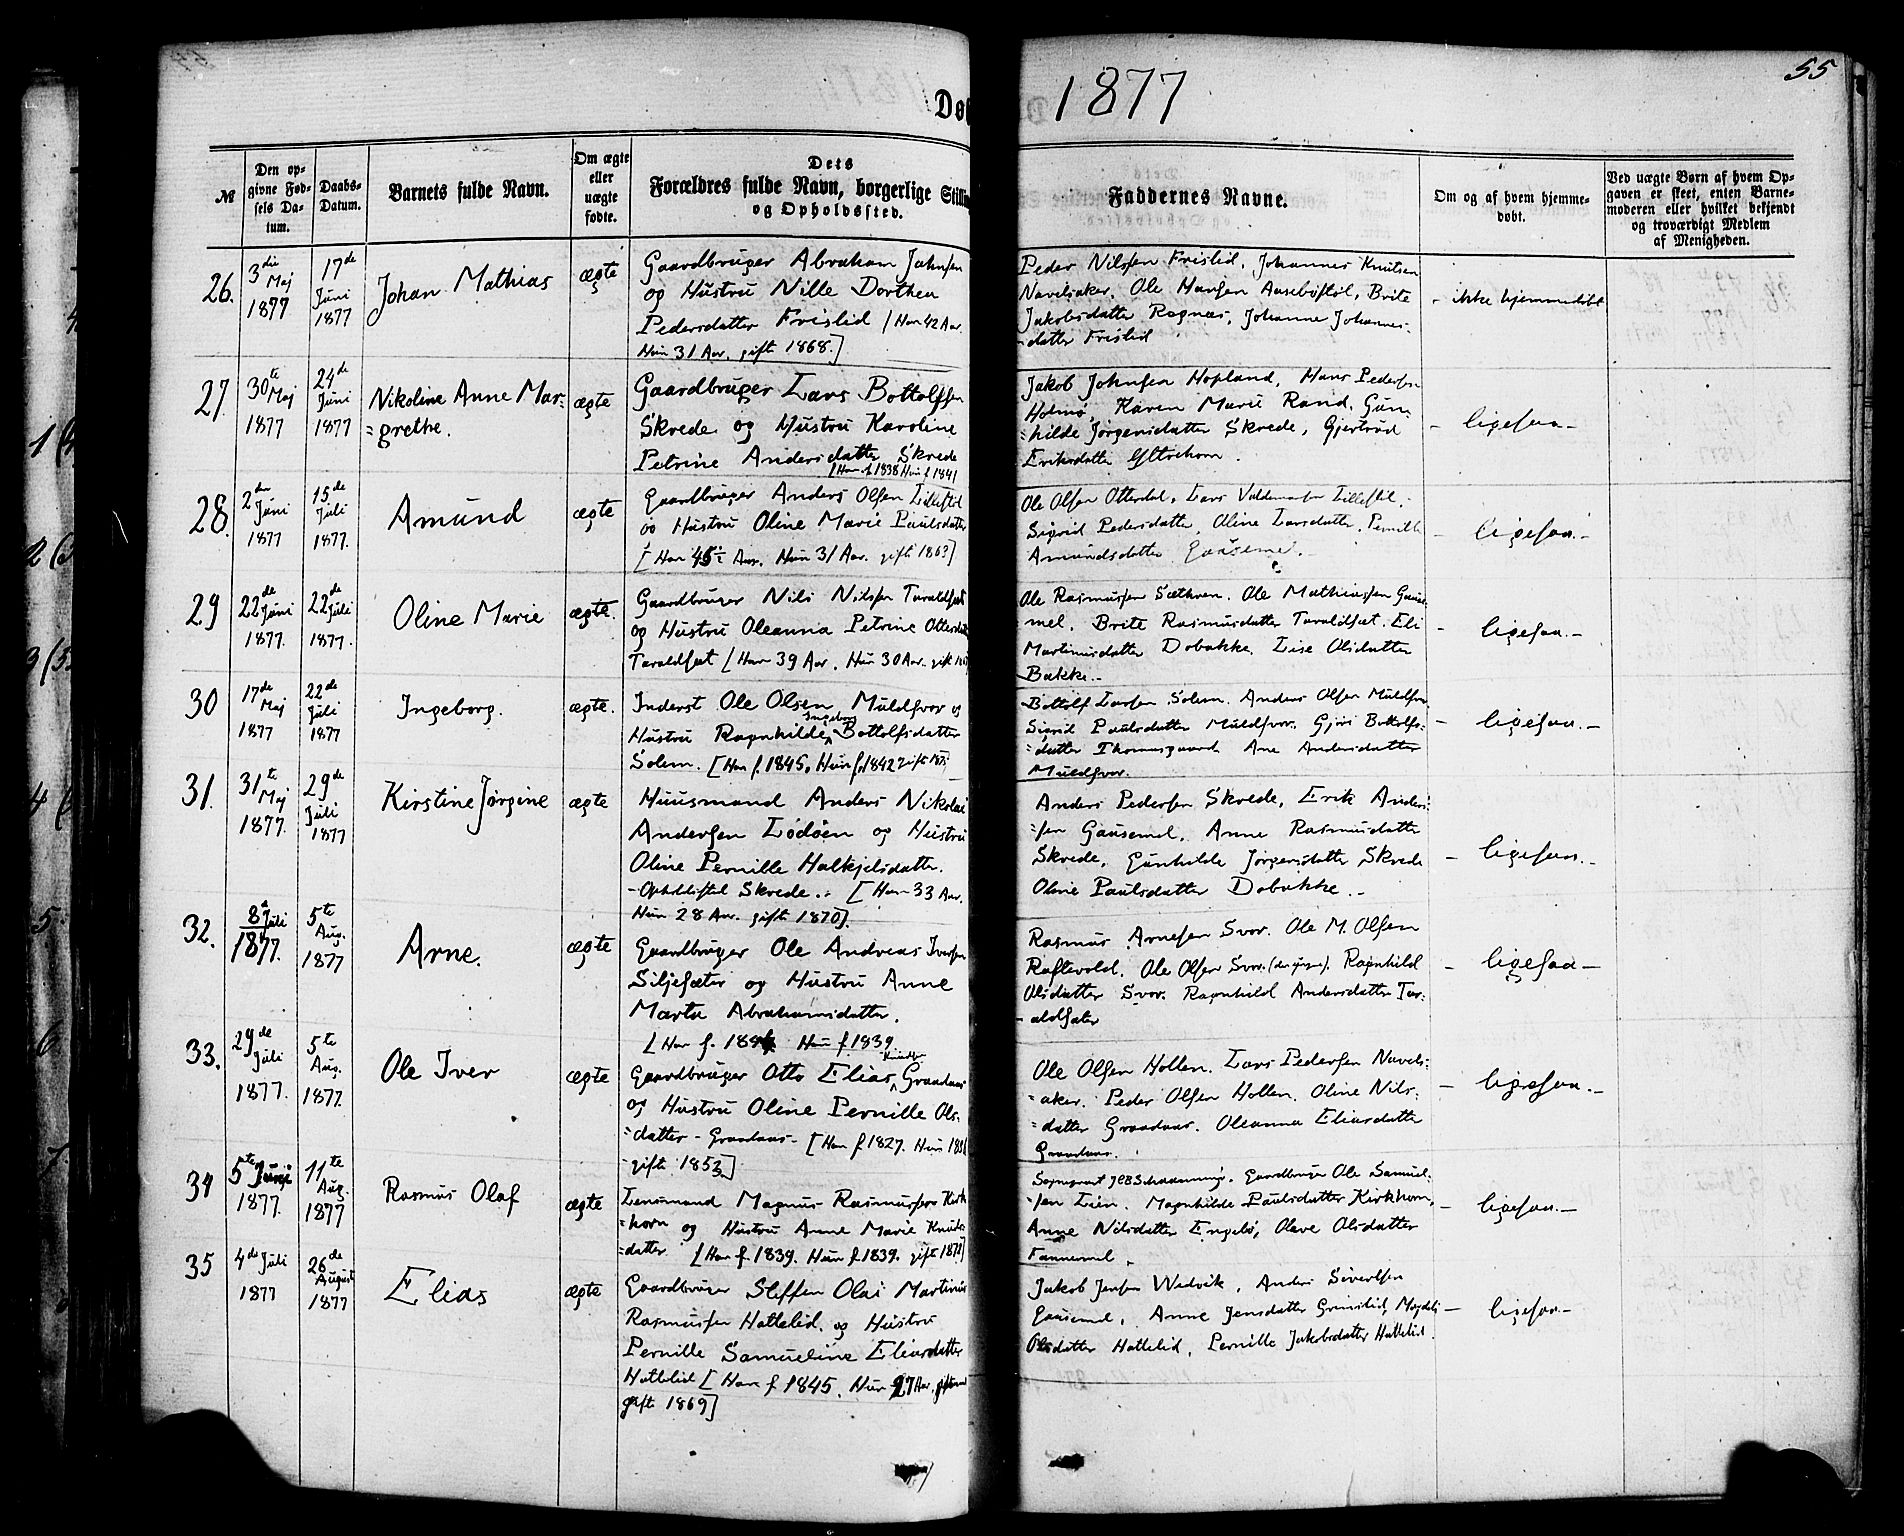 1877
55
Dø
№
Den op-
givne Fød-
sels Da-
tum.
Daabs-
Datum.
Barnets fulde Navn.
Om ægte
eller
uægte
fødte.
Dets
Forældres fulde Navn, borgerlige Stillin
og Opholdssted.
Faddernes Navne.
Om og af hvem hjemme-
døbt.
Ved uægte Børn af hvem Op-
gaven er skeet, enten Barne-
moderen eller hvilket bekjendt
og troværdigt Medlem
af Menigheden.
26.
3die
Maj
1877
17de
Juni
1877
Johan Mathias
ægte
Gaardbruger Abraham Johnsen
og Hustru Nille Dorthea
Pedersdatter Frislid [Han 42 Aar.
Hun 31 Aar. gifte 1868.]
Peder Nilssen Frislid, Johannes Knutsen
Navelsaker, Ole Hansen Aasebøstøl, Brite
Jakobsdatter Ragnæs, Johanne Johannes-
datter Frislid
- ikke hjemmedøbt
27.
30te
Maj
1877
24de
Juni
1877
Nikoline Anne Mar-
=grethe.
ægte
Gaardbruger Lars Bottolfsen
Skrede og Hustru Karoline
Petrine Andersdatter Skrede
[Han f. 1838 Hun f. 1841
Jakob Johnsen Hopland, Hans Pedersen
Holmø, Karen Marie Rand, Gun-
=hilde Jørgensdatter Skrede, Gjertrud
Eriksdatter
- ligesaa -
28.
2den
Juni
1877
15de
Juli
1877.
Amund
ægte
Gaardbruger Anders Olsen Lillestøl
og Hustru Oline Marie Paulsdatter
[Han 45½ Aar. Hun 31 Aar. gifte 1863]
Ole Olsen Otterdal, Lars Valdemarsen Lillestøl,
Sigrid Pedersdatter, Oline Larsdatter, Pernille
Amundsdatter Gausemel.
- ligesaa. -
29
22de
Juni
1877.
22de
Juli
1877.
Oline Marie
ægte.
Gaardbruger Nils Nilssen Taraldset
og Hustru Oleanna Petrine Ottersdatter
Taraldset [Han 39 Aar, Hun 30 Aar. gift
Ole Rasmussen Sæthren. Ole Mathiassen Gause-
mel, Brite Rasmusdatter Taraldset. Eli
Martinusdatter Dobakke. Lise Olsdatter
Bakke. -
- ligesaa. -
30
17de
Maj
1877
22de
Juli
1877
Ingeborg.
ægte.
Inderst Ole Olsen Muldsvor og
Hustru Ragnhilde Ingeborg Bottolfsdatter
Solem. [Han f. 1845, Hun f. 1842 gift
Bottolf Larsen Solem. Anders Olsen Muldsvor
Sigrid Paulsdatter Muldsvor. Gjøri Bottolfs-
=datter Thomasgaard Ane Andersdatter
Muldsvor.
- ligesaa. -
31.
31te
Maj
1877.
29de
Juli
1877
Kirstine Jørgine
ægte
Huusmand Anders Nikolai
Andersen Lødøen og Hustru
Oline Pernille Halkjelsdatter.
- Opholdsted Skrede. - [Han 33 Aar.
Hun 28 Aar. gifte 1870].
Anders Pedersen Skrede, Erik Anders-
=sen Gausemel, Anne Rasmusdatter
Skrede, Gunhilde Jørgensdatter Skrede
Oline Paulsdatter Dobakke. -
- ligesaa. -
32.
8de Juli
1877.
5te
Aug.
1877
Arne.
ægte
Gaardbruger Ole Andreas Iversen
Siljesæter og Hustru Anne
Marta Abrahamsdatter.
[Han f. Hun f. 1839.
Rasmus Arnesen Svor. Ole M. Olsen
Raftevold. Ole Olsen Svor. (den yngre). Ragnhild
Olsdatter Svor. Ragnhild Andersdatter Tar-
aldsæter
- ligesaa -
33.
29de
Juli
1877.
5te
Aug.
1877.
Ole Iver
ægte
Gaardbruger Otto Elias Knudsen Graadaas
og Hustru Oline Pernille Ols-
=datter - Graadaas - [Han f. 1827. Hun
- gifte 1853]
Ole Olsen Hollen. Lars Pedersen Navels-
=aker. Peder Olsen Hollen. Oline Nils-
=datter Graadaas. Oleanna Eliasdatter
Graadaas.
- ligesaa. -
34
5te Juni
1877.
11te
Aug.
1877
Rasmus Olaf
ægte
Lensmand Magnus Rasmussen Kirk
=horn og Hustru Anne Marie Knuds-
=datter [Han f. 1839. Hun f. 1839. gift
Sogneprest Schaanning, Gaardbruger Ole Samuel-
=sen Lien. Magnhilde Paulsdatter Kirkhorn,
Anne Nilsdatter Engelø, Olave Olsdatter
Tannemel.
- ligesaa. -
35
4de Juli
1877
26de
August
1877
Elias
ægte
Gaardbruger Steffen Olai Martinus
Rasmussen Hattelid og Hustru
Pernille Samueline Eliasdatter
Hattelid [Han f. 1845. Hun 27 Aar.
gift 1869]
Jakob Jensen Wedvik, Anders Sivertsen
Gausemel, Anne Jensdatter Grimstid,
Olsdatter Hattelid, Pernille Jakobsdatter Hattelid.
- ligesaa -